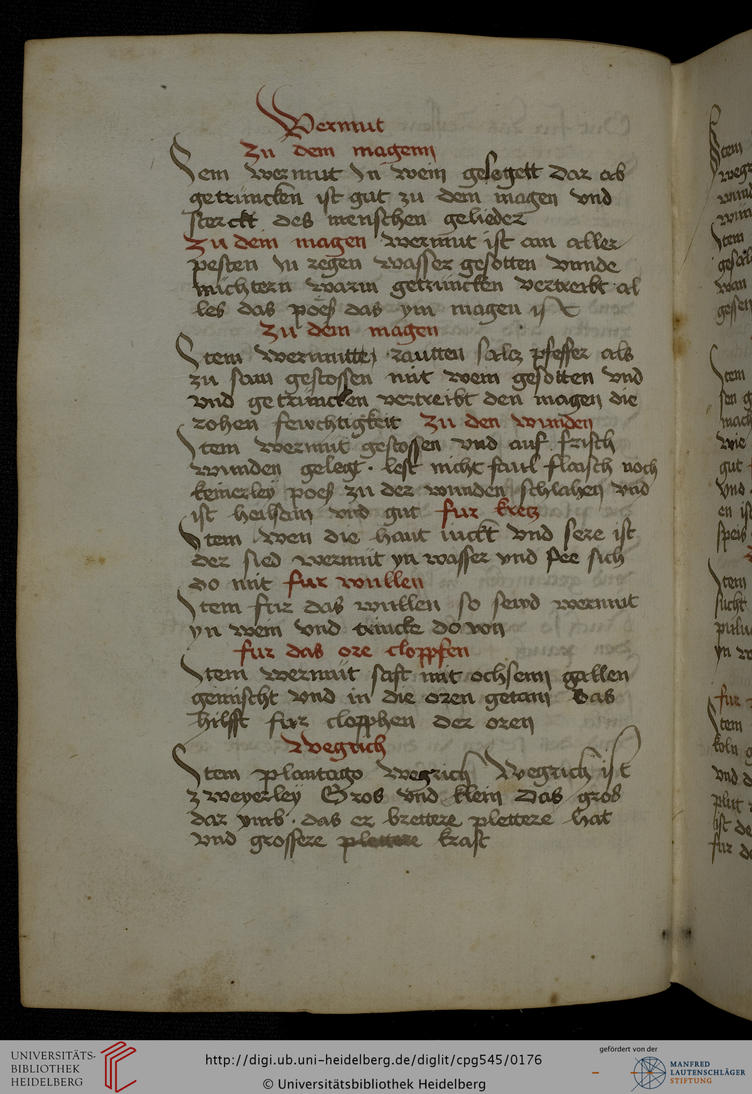 Wermut
Zu dem magenn
Item wermut In wein gesegett dar ab
getruncken ist gut zu dem magen vnd
sterckt des menschen gelieder
Zu dem magen wermut ist am aller
pesten In regen wasser gesotten vnnde
nuchtern warm getruncken vertreibt al
les das poeß das ym magen ist
Zu dem magen
Item wermutte rautten salcz pfeffer als
zu sam gestossen mit wein gesotten vnd
vnd getruncken vertreibt den magen die
rohen fewchtigkeit Zu den wunden
Item wermut gestossen vnd auf frisch
wunden gelegt · lest nicht faul flaisch noch
keinerley poeß zu der wunden schlahen vnd
ist heilsam vnd gut fur kretz
Item wen die haut iuckt vnd sere ist
der sied wermut yn wasser vnd sich
do mit fur wullen
Item fur das wullen so sewd wermut
yn wein vnd trincke do von
fur das ore cloppfen
Item wermut saft mit ochsenn gallen
gemischt vnd in die oren getann das
hilfft fur clopphen der oren
Wegrich
Item plantago wegrich Wegrich ist
zweyerley Gros vnd klein Das gros
dar vmb · das er brettere plettere hat
vnd grossere kraft
Item
wegr
Item
Item
gut
vnd
speis
Item
sucht
yn w
fur
Item
koln
vnd d
plut
fur d
UNIVERSITÄTS-
BIBLIOTHEK
HEIDELBERG
http://digi.ub.uni-heidelberg.de/diglit/cpg545/0176
© Universitätsbibliothek Heidelberg
gefördert von der
MANFRED
LAUTENSCHLÄGER
STIFTUNG